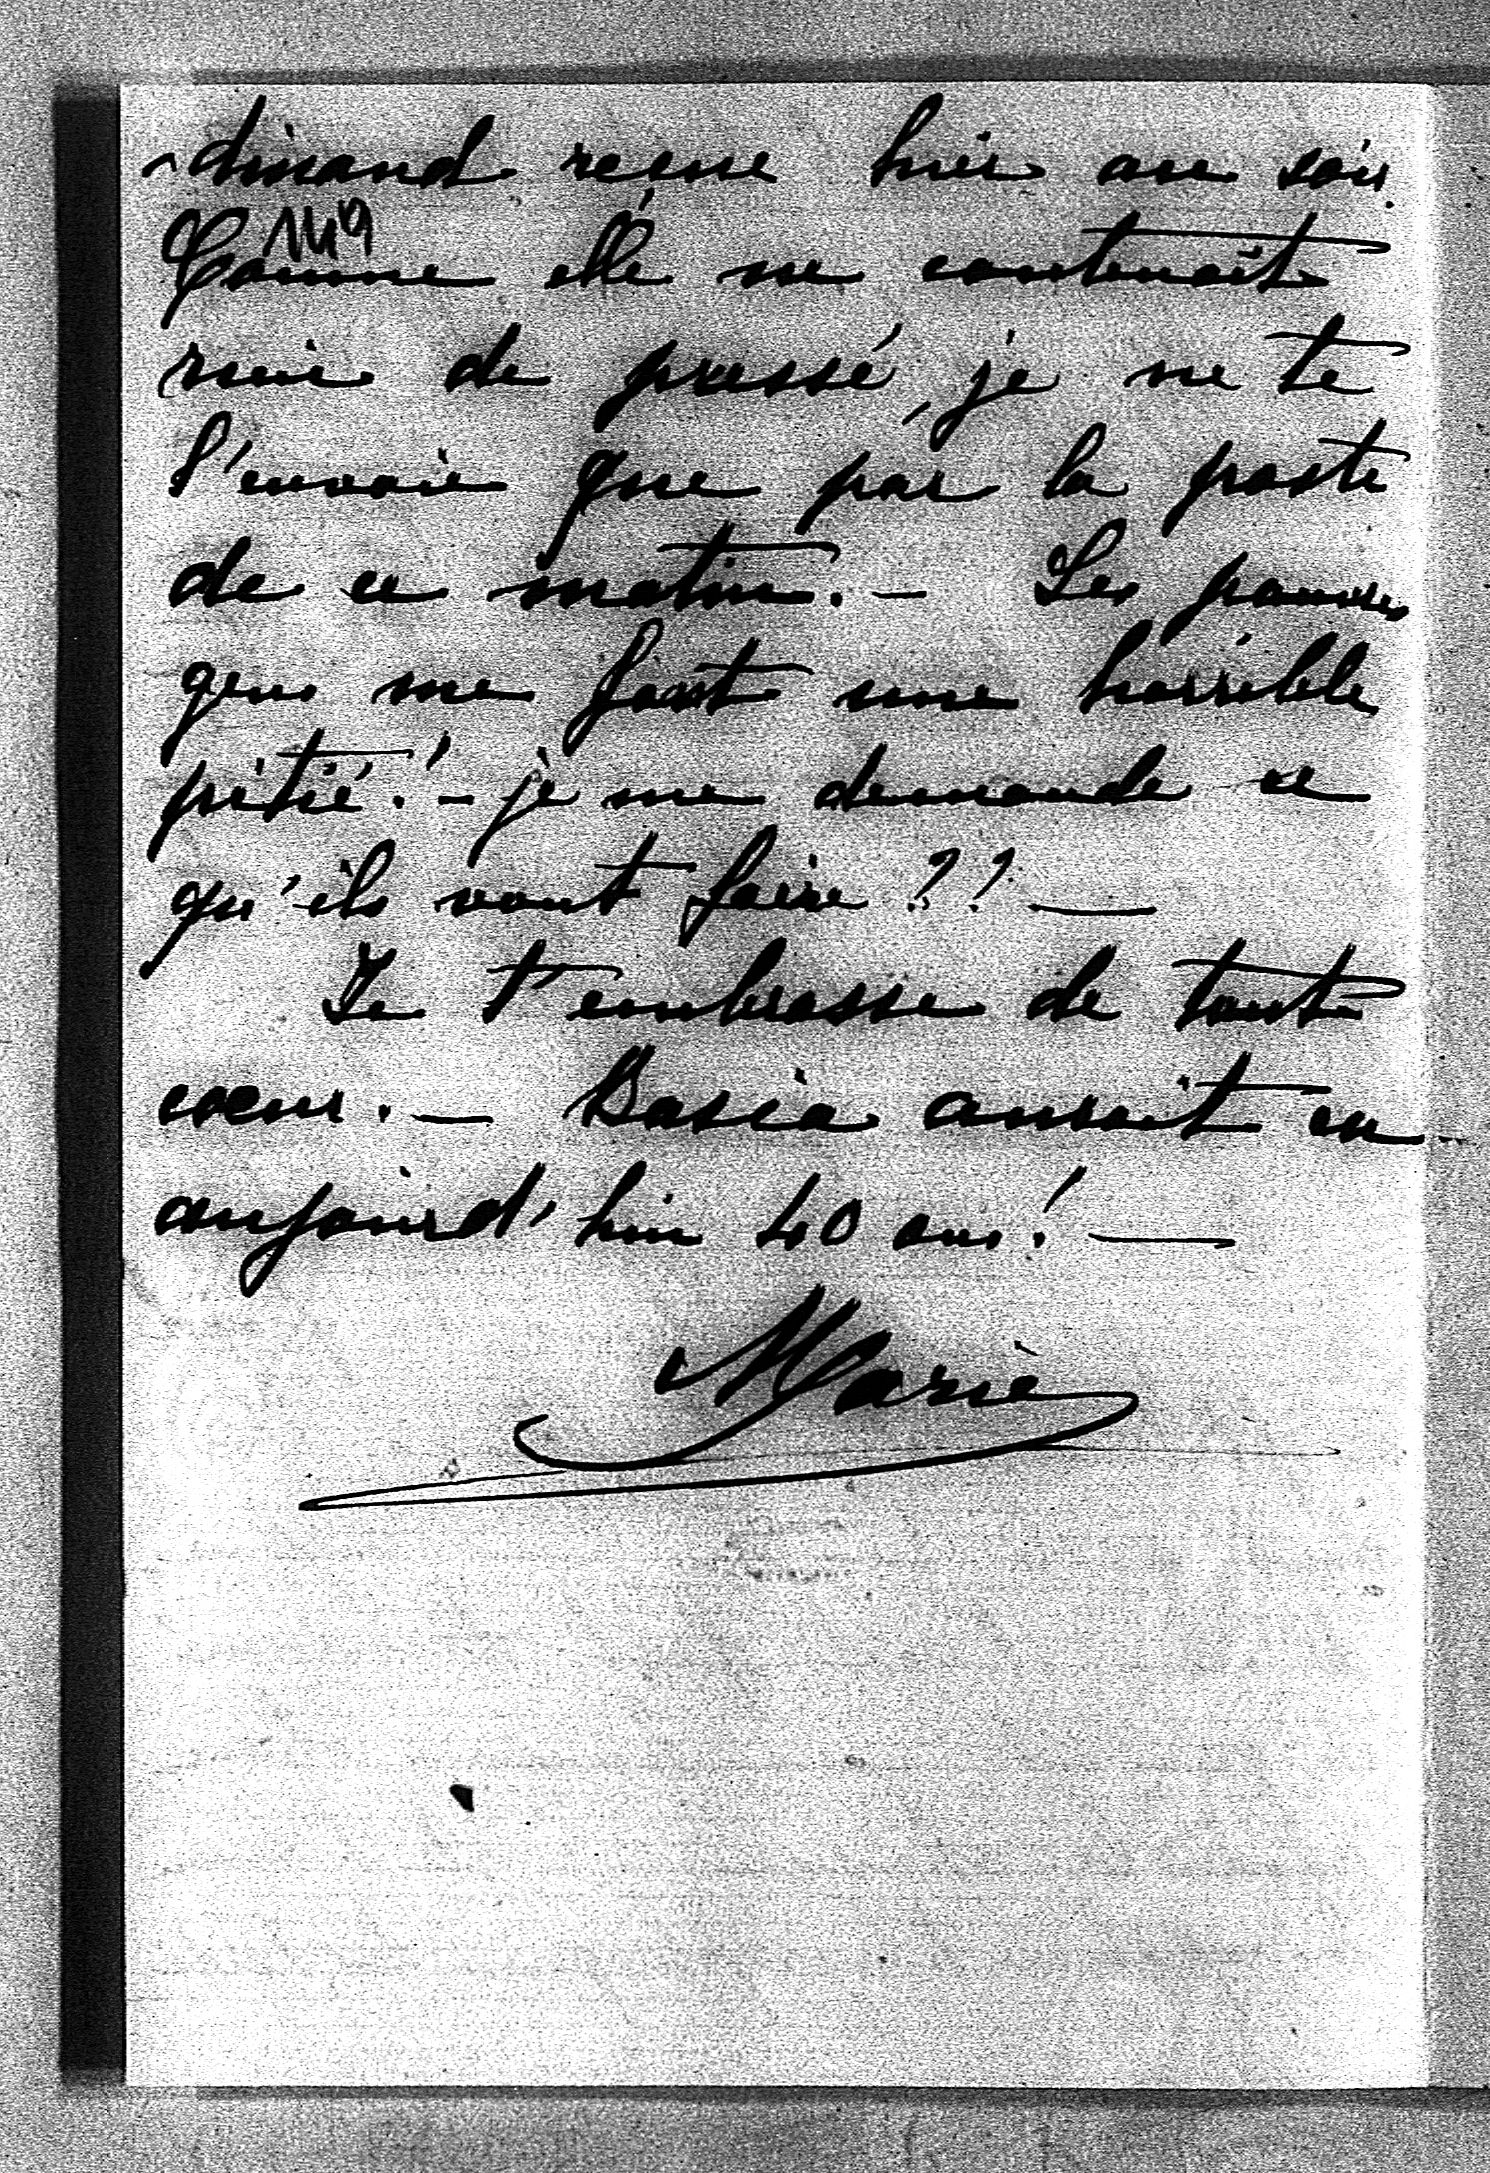 -dinand reçue hier au soir.
149
Comme elle ne contenait
rien de pressé, je ne te
l'envoie que par la poste
de ce matin. — Les pauvres
gens me font une horrible
pitié! — je me demande ce
qu'ils vont faire?? —
Je t'embrasse de tout
cœur. — Basia aurait eu
aujourd'hui 40 ans! —
Marie